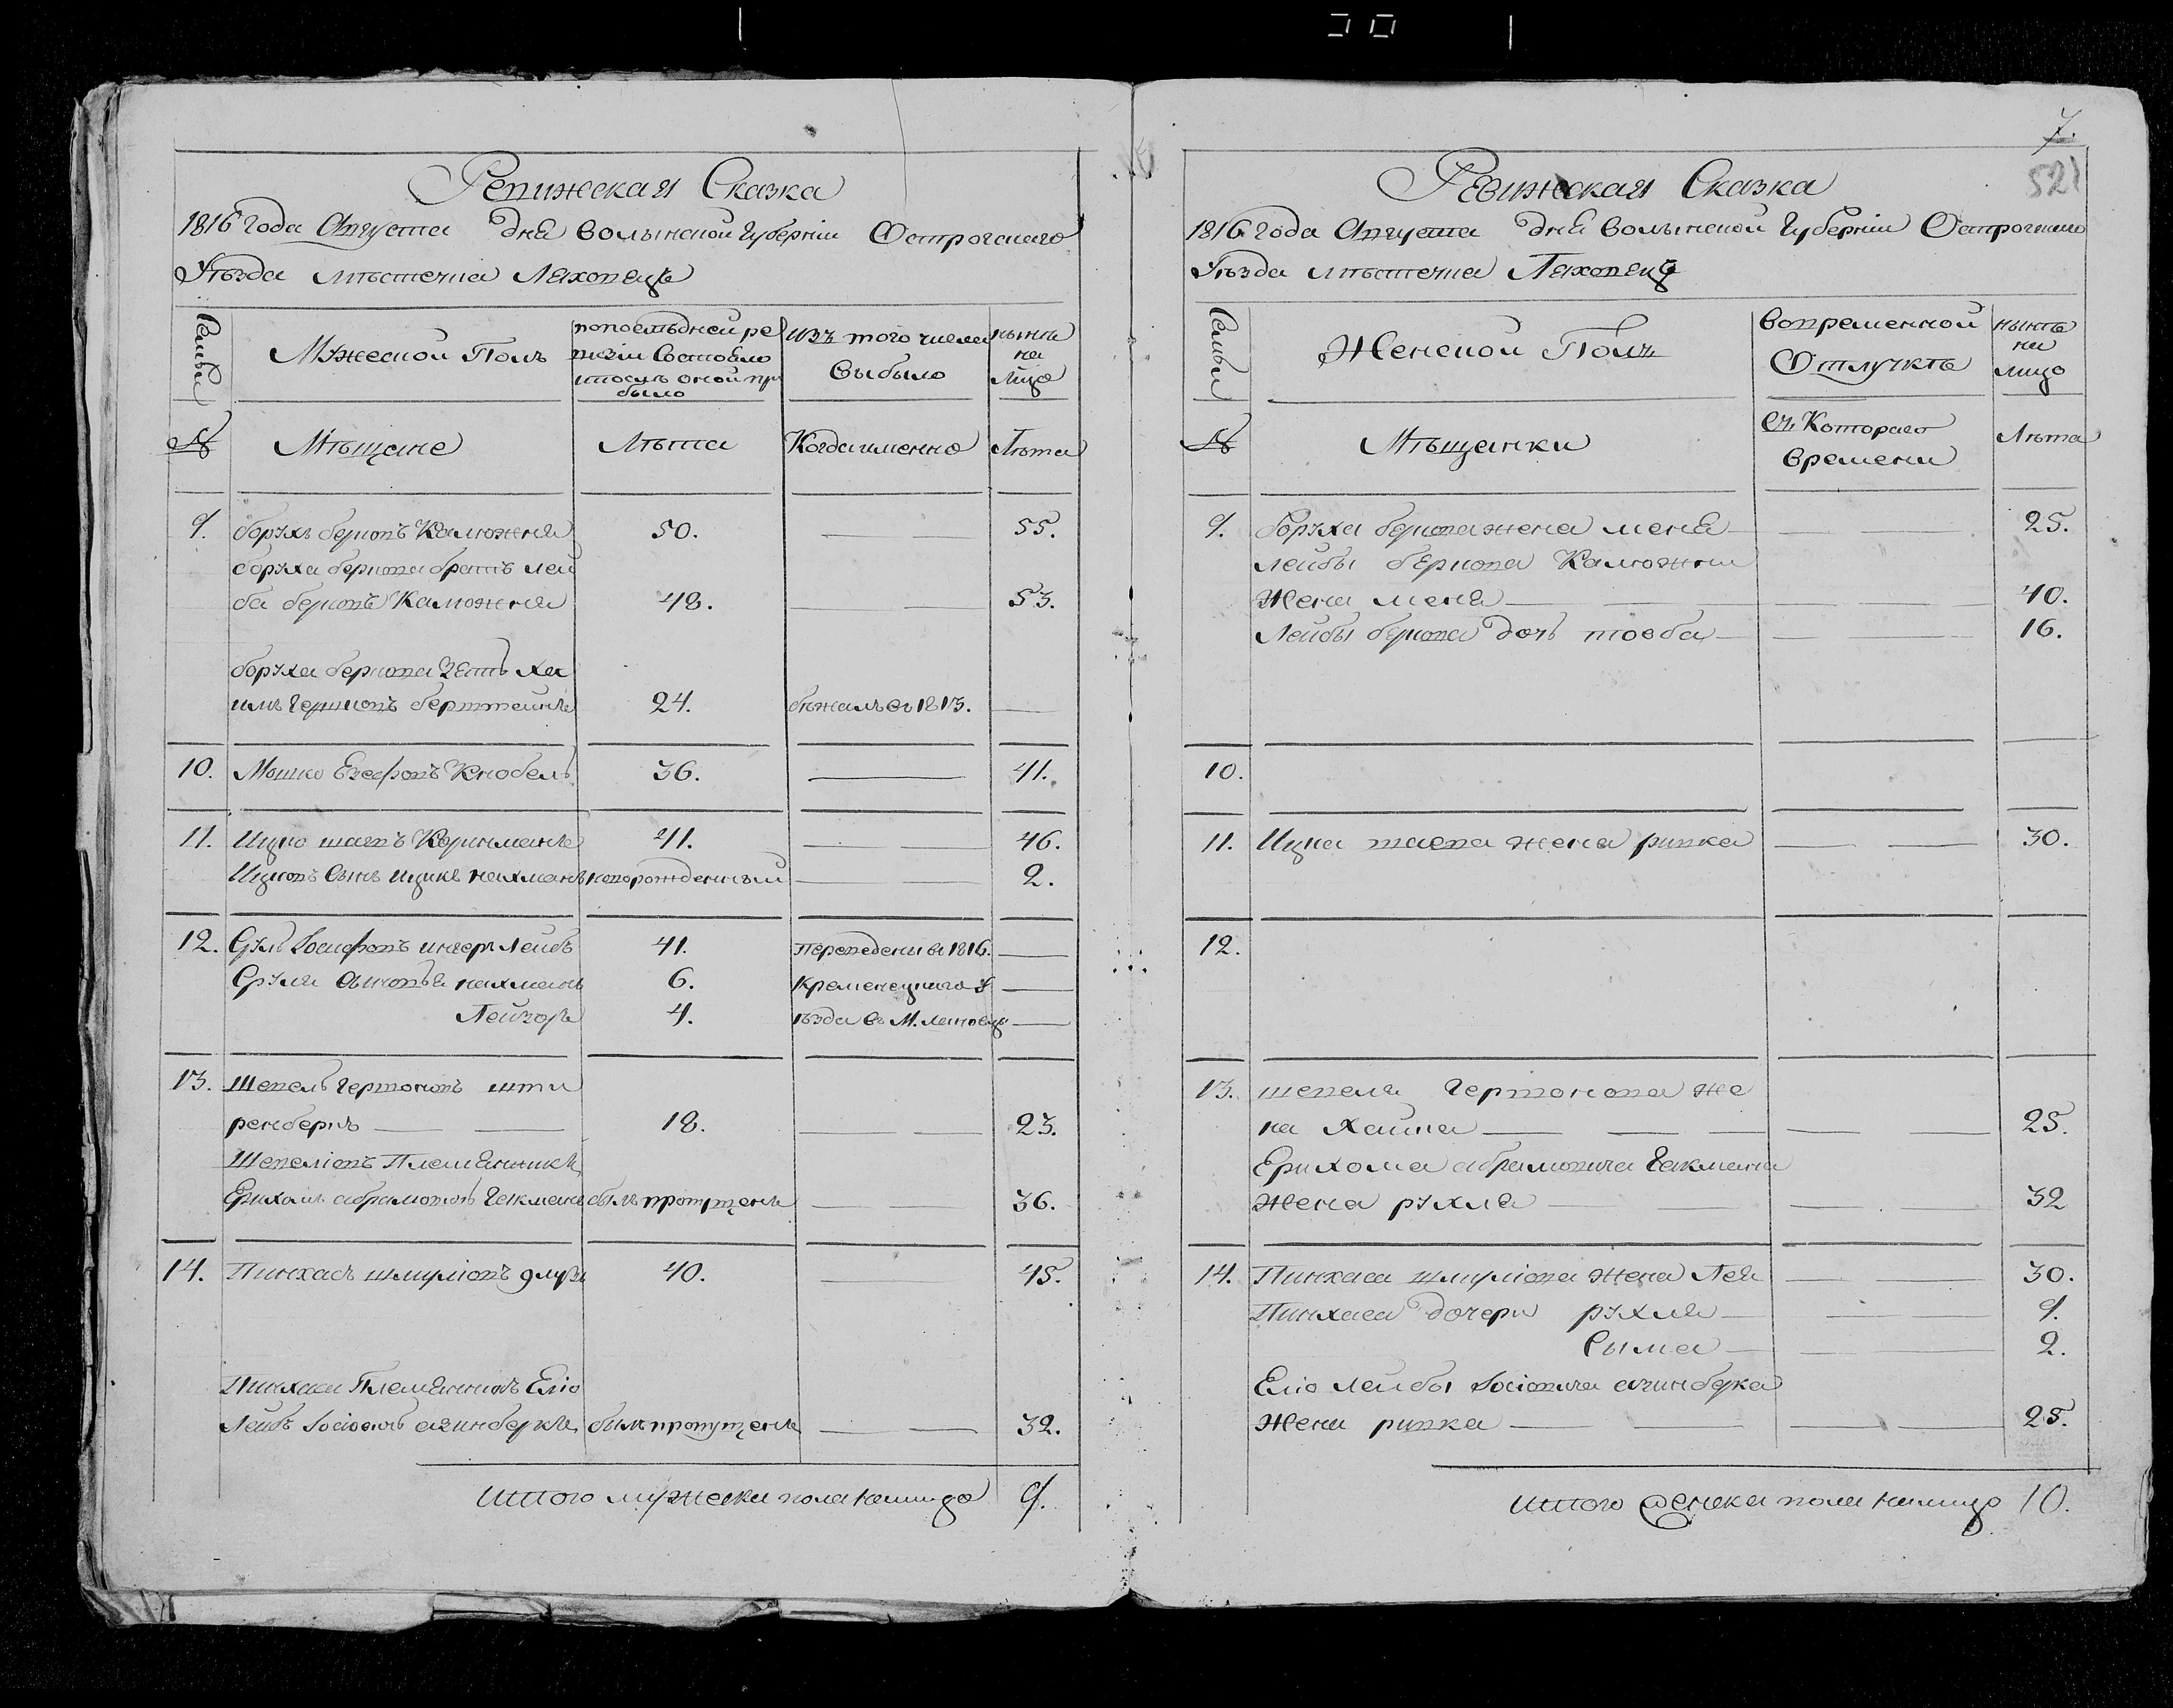 Ревижская Сказка
1816 года Августа дня Волынской Губерніи Острогского
Уѣзда мѣстечка Ляховецъ
Семьи
Мужеской Полъ
попослѣдней ре
визіи состояло
ипослѣ оной при
было
изъ того числа
выбыло
нынѣ
на
лицо
№
Мѣщане
Лѣта
Когда именно
Лѣта
9. борухъ берковъ Каможня 50. 55.
боруха беркова братъ лей
ба берковъ Каможня 48. 53.
боруха беркова зеть ха
имъ гершковъ 24. бѣжалъ въ 1813.
10. Мошко Езефовъ Кнобель 36. 41.
11. Ицко 41. 46.
Ицковъ сынъ ицикъ нахманъ новорожденный 2.
12. Сруль Іосифовъ лейбъ 41. Переведены въ 1816.
Сруля сыновья нахманъ 6. Кременецкаго у
Лейзоръ 4. ѣзда въ М.
13. Шепель шти
ренберхъ 18. 23.
Шепеліовъ Племянникъ
Ерихомъ абрамовичъ Гекманъ былъ пропущенъ 36.
14. Пинхасъ шмуліовъ 40. 45.
Пинхаса Племянникъ Еліо
Лейбъ Іосіовичъ былъ пропущенъ 32.
Итого мужеска пола налицо 9.
7.
521
Ревижская Сказка
1816 года Августа дня Волынской Губерніи Острогского
Уѣзда мѣстечка Ляховецъ
Семьи
Женской Полъ
вовременной
Отлучкѣ
нынѣ
на
лицо
№
Мѣщанки
съ Котораго
времени
Лѣта
9. Боруха беркова жена меня 25.
лейбы беркова Каможни
Жена меня 40.
Лейбы беркова дочь товба 16.
10.
11. Ицка жена ривка 30.
12.
13. шепеля же
на Хайка 25.
Ерихома абрамовича Гекмана
Жена рухля 32
14. Пинхаса шмуліова жена Лея 30.
Пинхаса дочери рухля 9.
Сыма 2.
Еліо лейбы Іосіовича
Жена ривка 25.
Итого женска пола налицо 10.